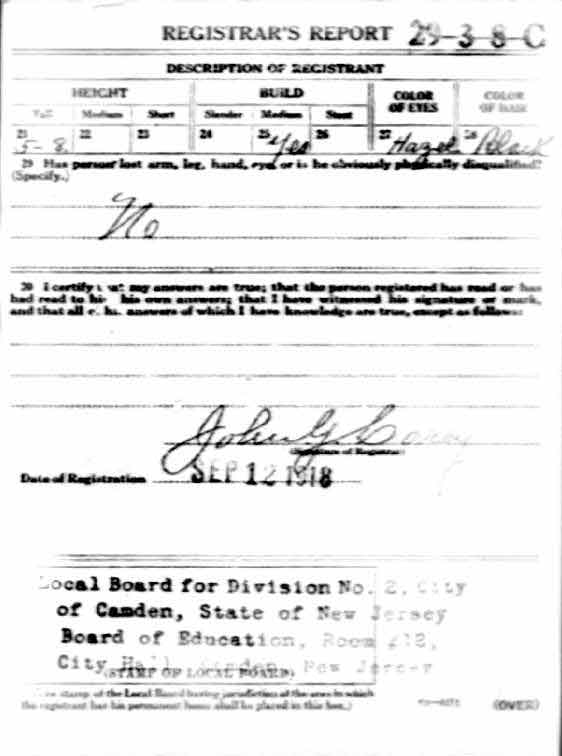 REGISTRAR'S REPORT 29-3-8-C
DESCRIPTION OF REGISTRANT
HEIGHT BUILD COLOR OF EYES COLOR OF HAIR
Tall Medium Short Slender Medium Stout
21 22 23 24 25 26 27 28
5-8 Yes Hazel Black
29 Has person lost arm, leg, hand, eye, or is he obviously physically disqualified?
(Specify.)
No
30 I certify that my answers are true; that the person registered has read or has
had read to him his own answers; that I have witnessed his signature or mark,
and that all of his answers of which I have knowledge are true, except as follows:
John G.
(Signature of Registrar)
Date of Registration SEP 12 1918
Local Board for Division No. 2, City
of Camden, State of New Jersey
Board of Education, Room 212,
City Hall, Camden, New Jersey
(STAMP OF LOCAL BOARD)
(The stamp of the Local Board having jurisdiction of the area in which
the registrant has his permanent home shall be placed in this box.)
(OVER)